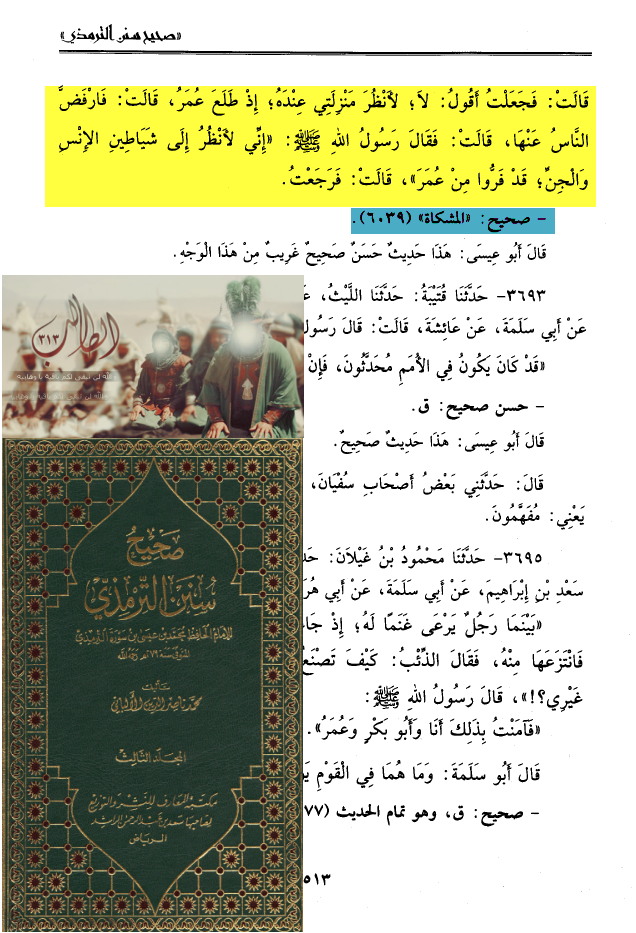 «صحيح سنن الترمذي»
قَالَتْ: فَجَعَلْتُ أَقُولُ: لاَ؛ لأَنْظُرَ مَنْزِلَتِي عِنْدَهُ؛ إِذْ طَلَعَ عُمَرُ، قَالَتْ: فَارْفَضَّ
النَّاسُ عَنْهَا، قَالَتْ: فَقَالَ رَسُولُ اللهِ ﷺ: «إِنِّي لأَنْظُرُ إِلَى شَيَاطِينِ الإِنْسِ
وَالْجِنِّ؛ قَدْ فَرُّوا مِنْ عُمَرَ»، قَالَتْ: فَرَجَعْتُ.
- صحيح: «المشكاة» (٦٠٣٩).
قَالَ أَبُو عِيسَى: هَذَا حَدِيثٌ حَسَنٌ صَحِيحٌ غَرِيبٌ مِنْ هَذَا الْوَجْهِ.
٣٦٩٣- حَدَّثَنَا قُتَيْبَةُ: حَدَّثَنَا اللَّيْثُ،
عَنْ أَبِي سَلَمَةَ، عَنْ عَائِشَةَ، قَالَتْ: قَالَ رَسُولُ
«قَدْ كَانَ يَكُونُ فِي الأُمَمِ مُحَدَّثُونَ، فَإِنْ
- حسن صحيح: ق.
قَالَ أَبُو عِيسَى: هَذَا حَدِيثٌ صَحِيحٌ.
قَالَ: حَدَّثَنِي بَعْضُ أَصْحَابِ سُفْيَانَ،
يَعْنِي: مُفَهَّمُونَ.
٣٦٩٥- حَدَّثَنَا مَحْمُودُ بْنُ غَيْلاَنَ:
سَعْدِ بْنِ إِبْرَاهِيمَ، عَنْ أَبِي سَلَمَةَ، عَنْ أَبِي
«بَيْنَمَا رَجُلٌ يَرْعَى غَنَمًا لَهُ؛ إِذْ
فَانْتَزَعَهَا مِنْهُ، فَقَالَ الذِّئْبُ: كَيْفَ تَصْنَعُ
غَيْرِي؟!»، قَالَ رَسُولُ اللهِ ﷺ:
«فَآمَنْتُ بِذَلِكَ أَنَا وَأَبُو بَكْرٍ وَعُمَرُ».
قَالَ أَبُو سَلَمَةَ: وَمَا هُمَا فِي الْقَوْمِ
- صحيح: ق، وهو تمام الحديث (٧٧
٥١٣
الطالب
٣١٣
صَحِيحُ
سُنَنِ التِّرْمِذِيِّ
للإمام الحافظ محمد بن عيسى بن سورة الترمذي
المتوفى سنة ٢٧٩هـ رحمه الله
تأليف
محمد ناصر الدين الألباني
المجلد الثالث
مكتبة المعارف للنشر والتوزيع
لصاحبها سعد بن عبد الرحمن الراشد
الرياض